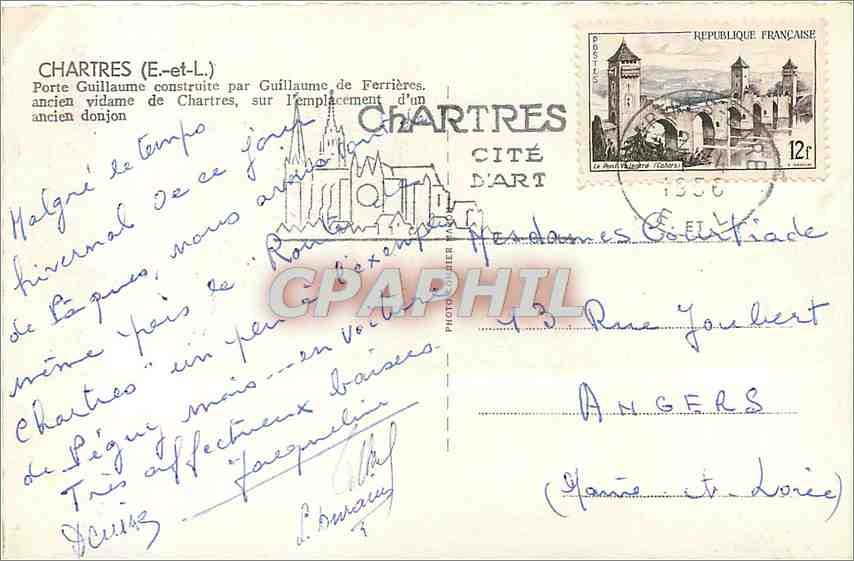 CHARTRES (E.-et-L.)
Porte Guillaume construite par Guillaume de Ferrières.
ancien vidame de Chartres, sur l'emplacement d'un
ancien donjon
ChARTRES
CITÉ
D'ART
POSTES
REPUBLIQUE FRANÇAISE
Le Pont Valentré (Cahors)
12f
1956
E. ET L.
Malgré le temps
hivernal de ce jour
de Pâques, nous avons tout de
même pris le "Route de
Chartres" un peu à l'exemple
de Péguy mais --- en voiture
Très affectueux baisers.
Jacqueline
Denise
PHOTO COMBIER MACON
Mesdames Courtiade
13 Rue Joubert
ANGERS
(Maine et Loire)
CPAPHIL